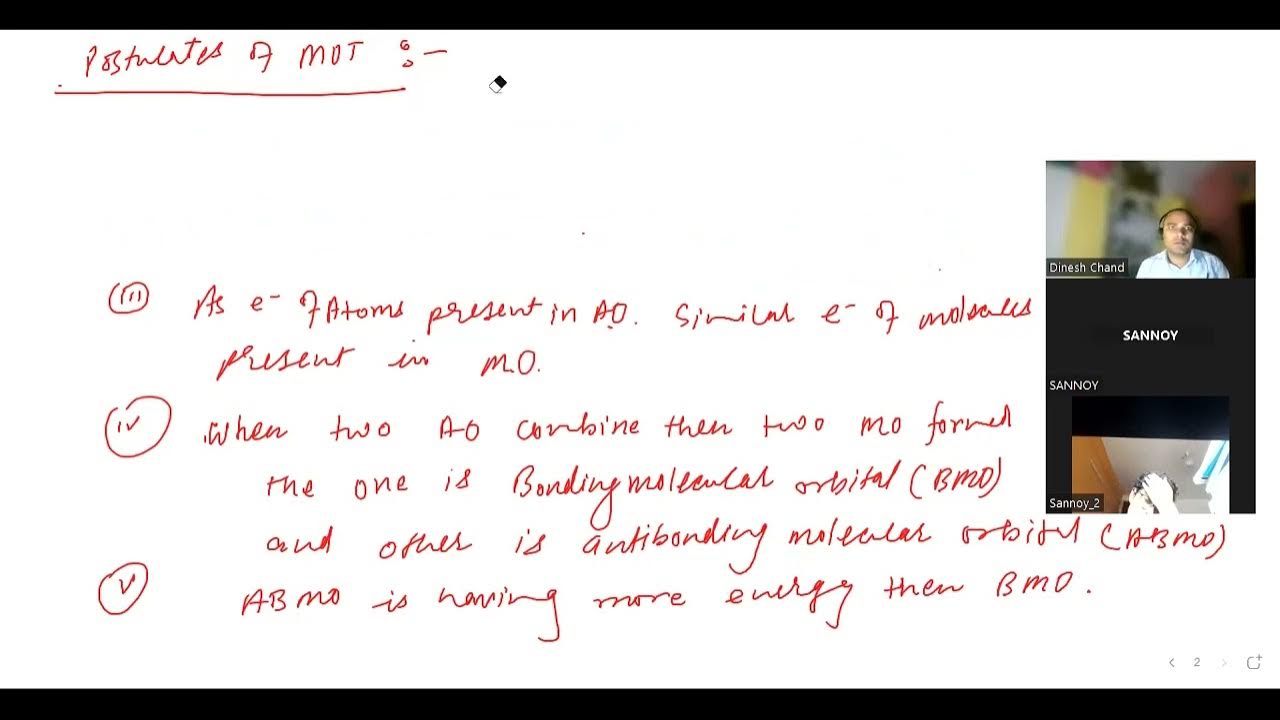 Postulates of MOT :-
(iii) As e⁻ of Atoms present in AO. Similar e⁻ of molecules
present in M.O.
(iv) When two AO combine then two MO formed
the one is Bonding molecular orbital (BMO)
and other is antibonding molecular orbital (ABMO)
(v) ABMO is having more energy then BMO.
Dinesh Chand
SANNOY
SANNOY
Sannoy_2
2